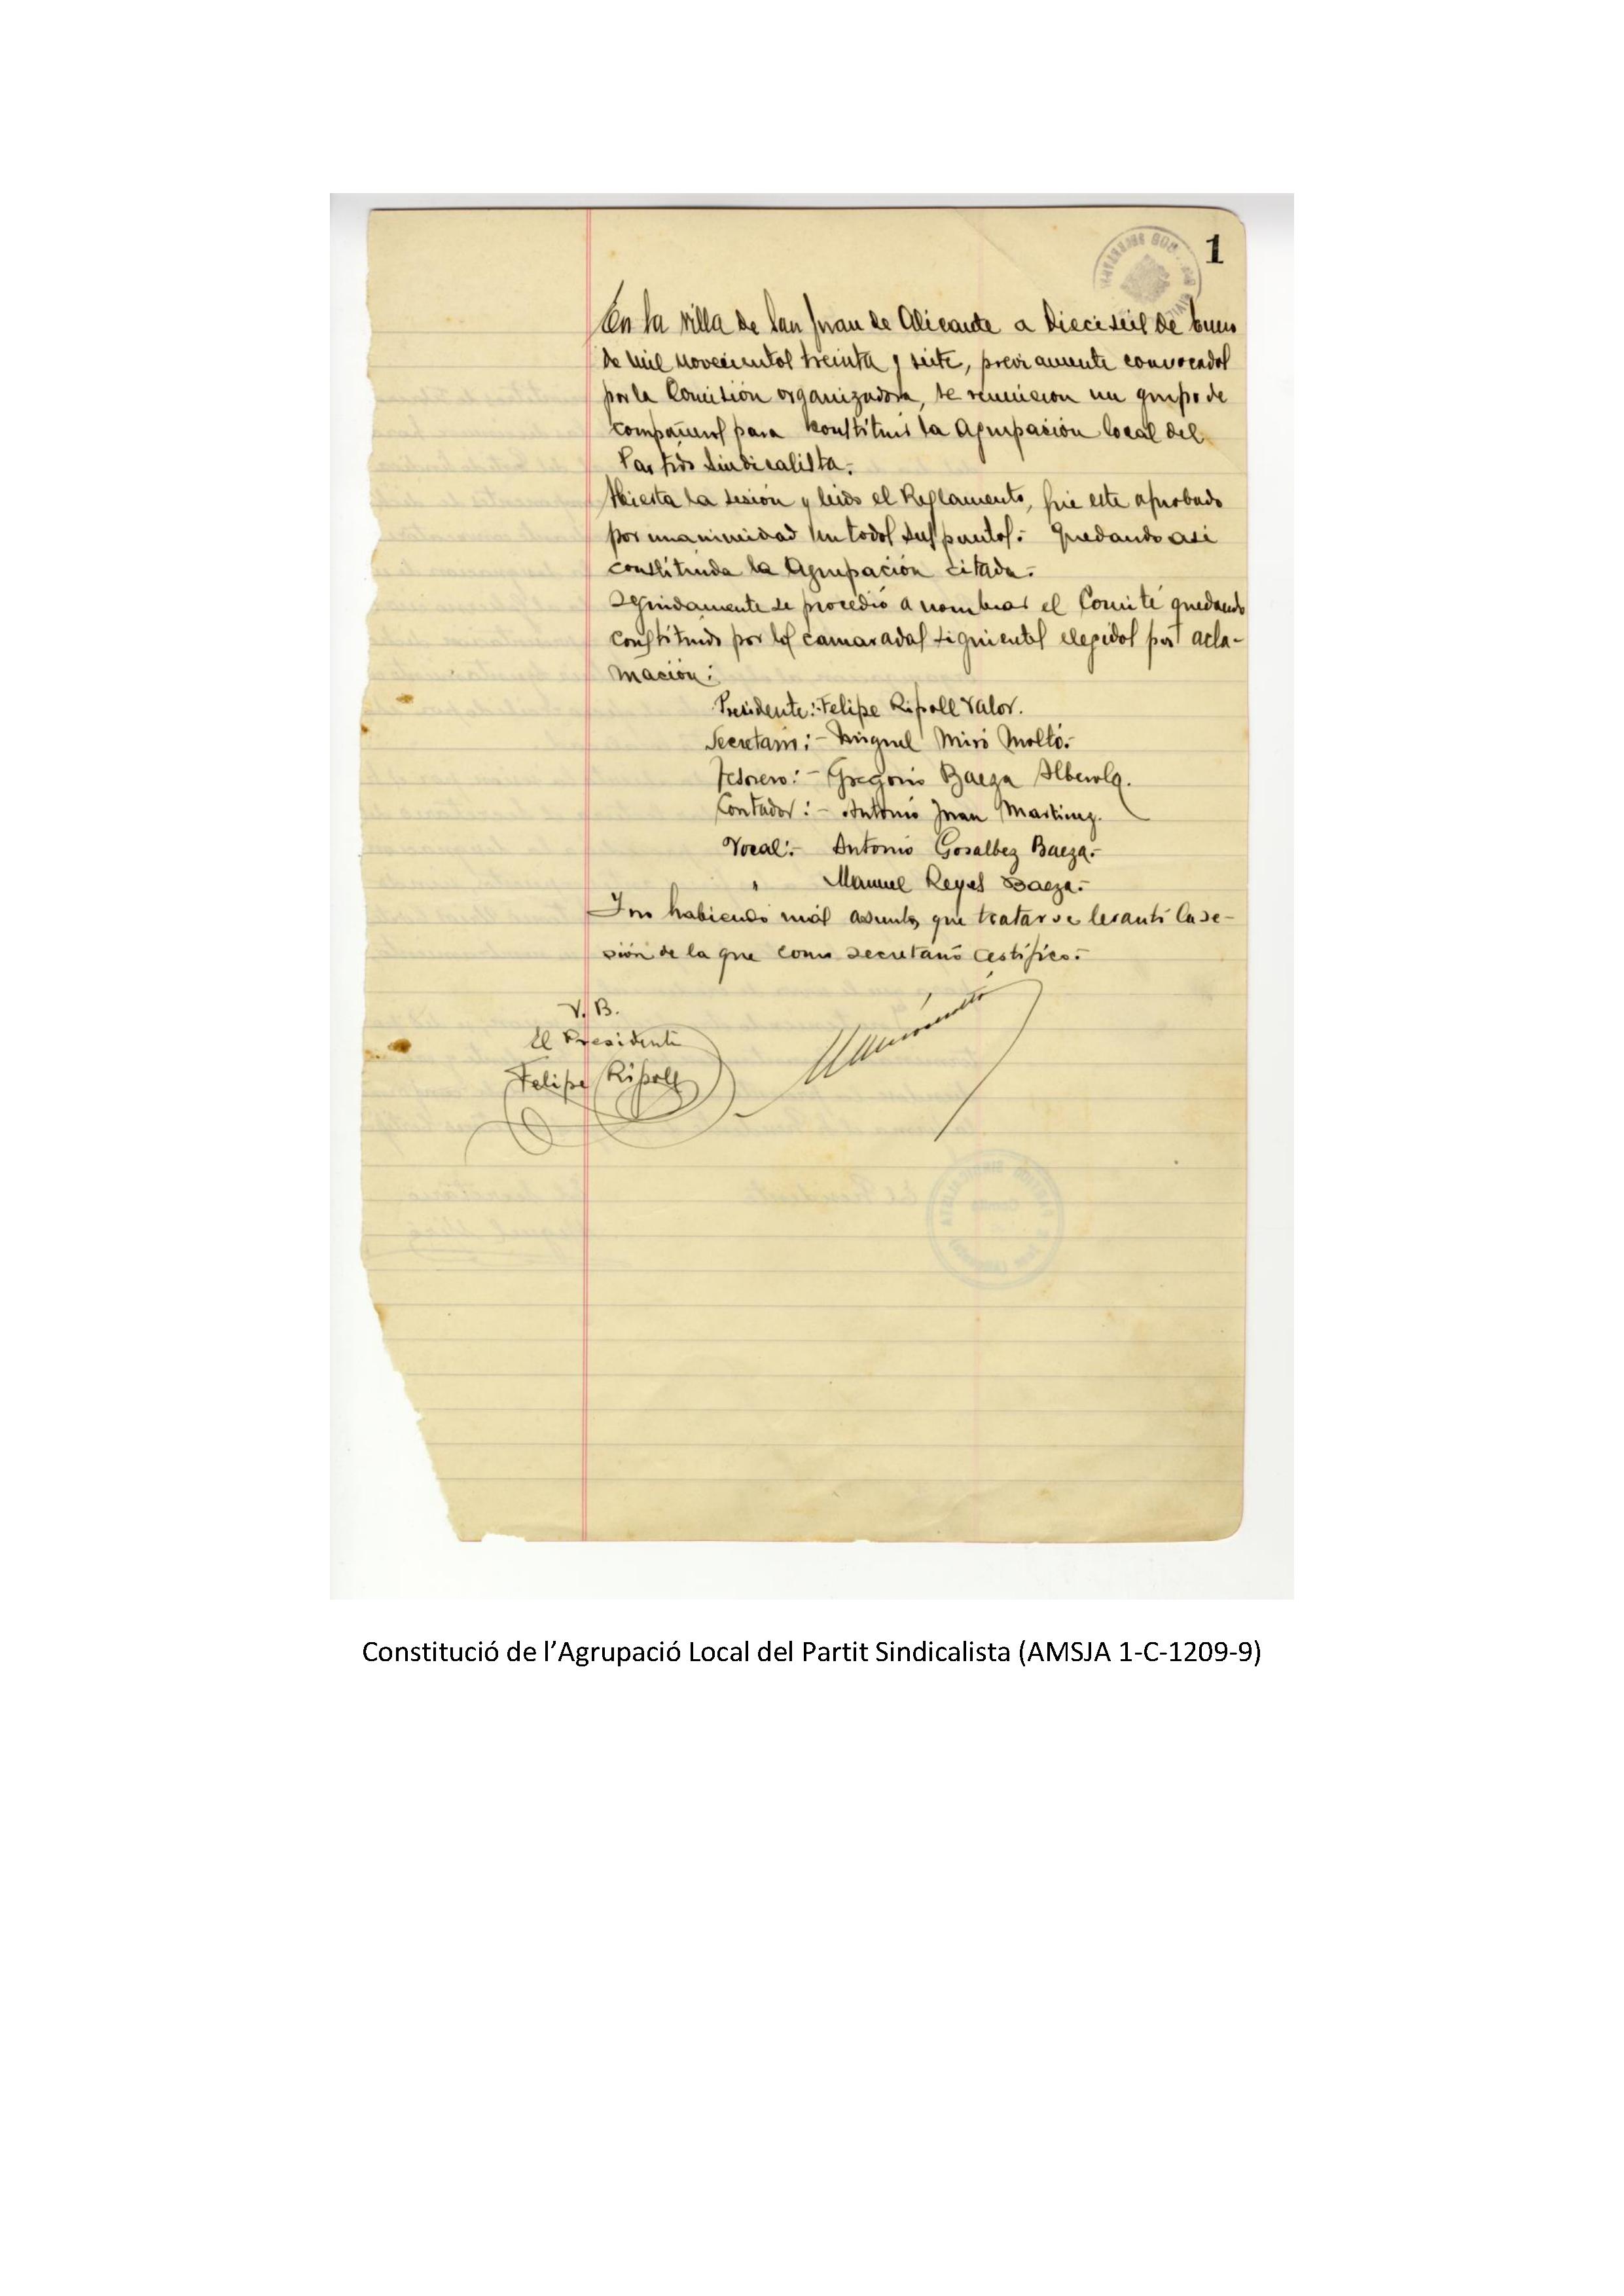 1
En la villa de San Juan de Alicante a dieciseis de Enero
de mil novecientos treinta y siete, previamente convocados
por la Comisión organizadora, se reunieron un grupo de
compañeros para constituir la Agrupación local del
Partido Sindicalista.-
Abierta la sesión y leido el Reglamento, fué este aprobado
por unanimidad en todos sus puntos.- Quedando asi
constituida la Agrupación citada.-
Seguidamente se procedió a nombrar el Comité quedando
constituido por los camaradas siguientes elegidos por acla-
mación:
Presidente:- Felipe Ripoll Valor.
Secretario:- Miguel Miró Moltó.-
Tesorero:- Gregorio Baeza Alberola.
Contador:- Antonio Juan Martinez.
Vocal:- Antonio Gosalbez Baeza.-
" Manuel Reyes Baeza.-
Y no habiendo más asuntos que tratar se levantó la se-
sión de la que como secretario certifico.-
V. B.
El Presidente
Felipe Ripoll
Constitució de l’Agrupació Local del Partit Sindicalista (AMSJA 1-C-1209-9)